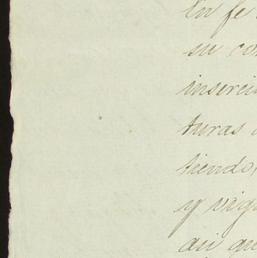 En fe
su co
inserci
turas
tiendo
y vig
asi qu